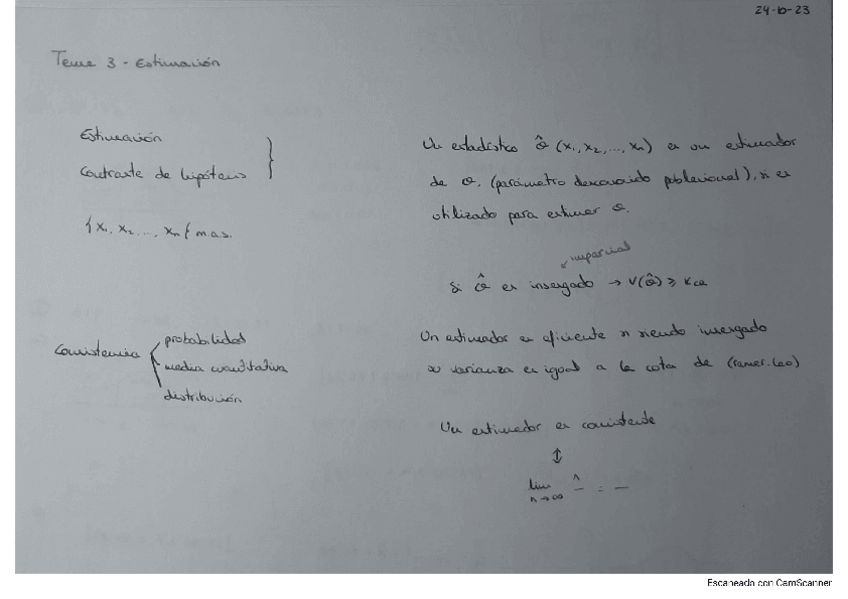 24-10-23
Tema 3 - Estimación
Estimación
Contraste de hipótesis
{x₁, x₂ ..., xₙ{ m.a.s.
Consistencia
probabilidad
media cuadrática
distribución
Un estadístico θ̂ (x₁, x₂, ..., xₙ) es un estimador
de θ, (parámetro desconocido poblacional), si es
utilizado para estimar θ.
imparcial
Si θ̂ es insesgado → V(θ̂) ≥
Un estimador es eficiente si siendo insesgado
su varianza es igual a la cota de
Un estimador es consistente
↕
lim n→∞ ^ =
Escaneado con CamScanner